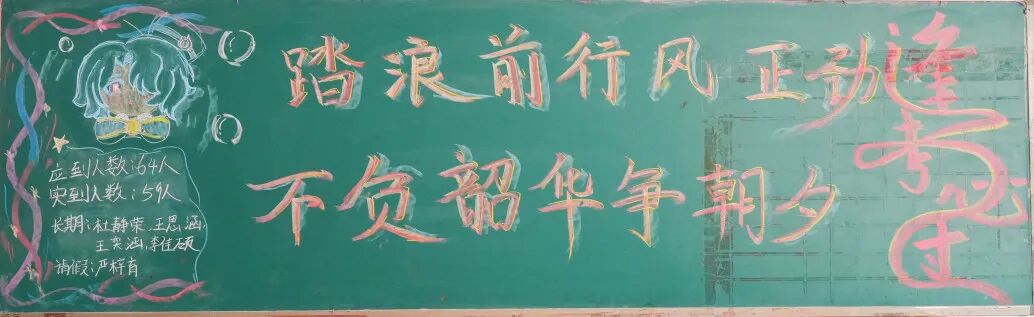 踏浪前行风正劲
不负韶华争朝夕
逢考必过
应到人数:64人
实到人数:59人
长期:杜静荣、王思涵、
王奕涵,李佳硕
请假:严梓育